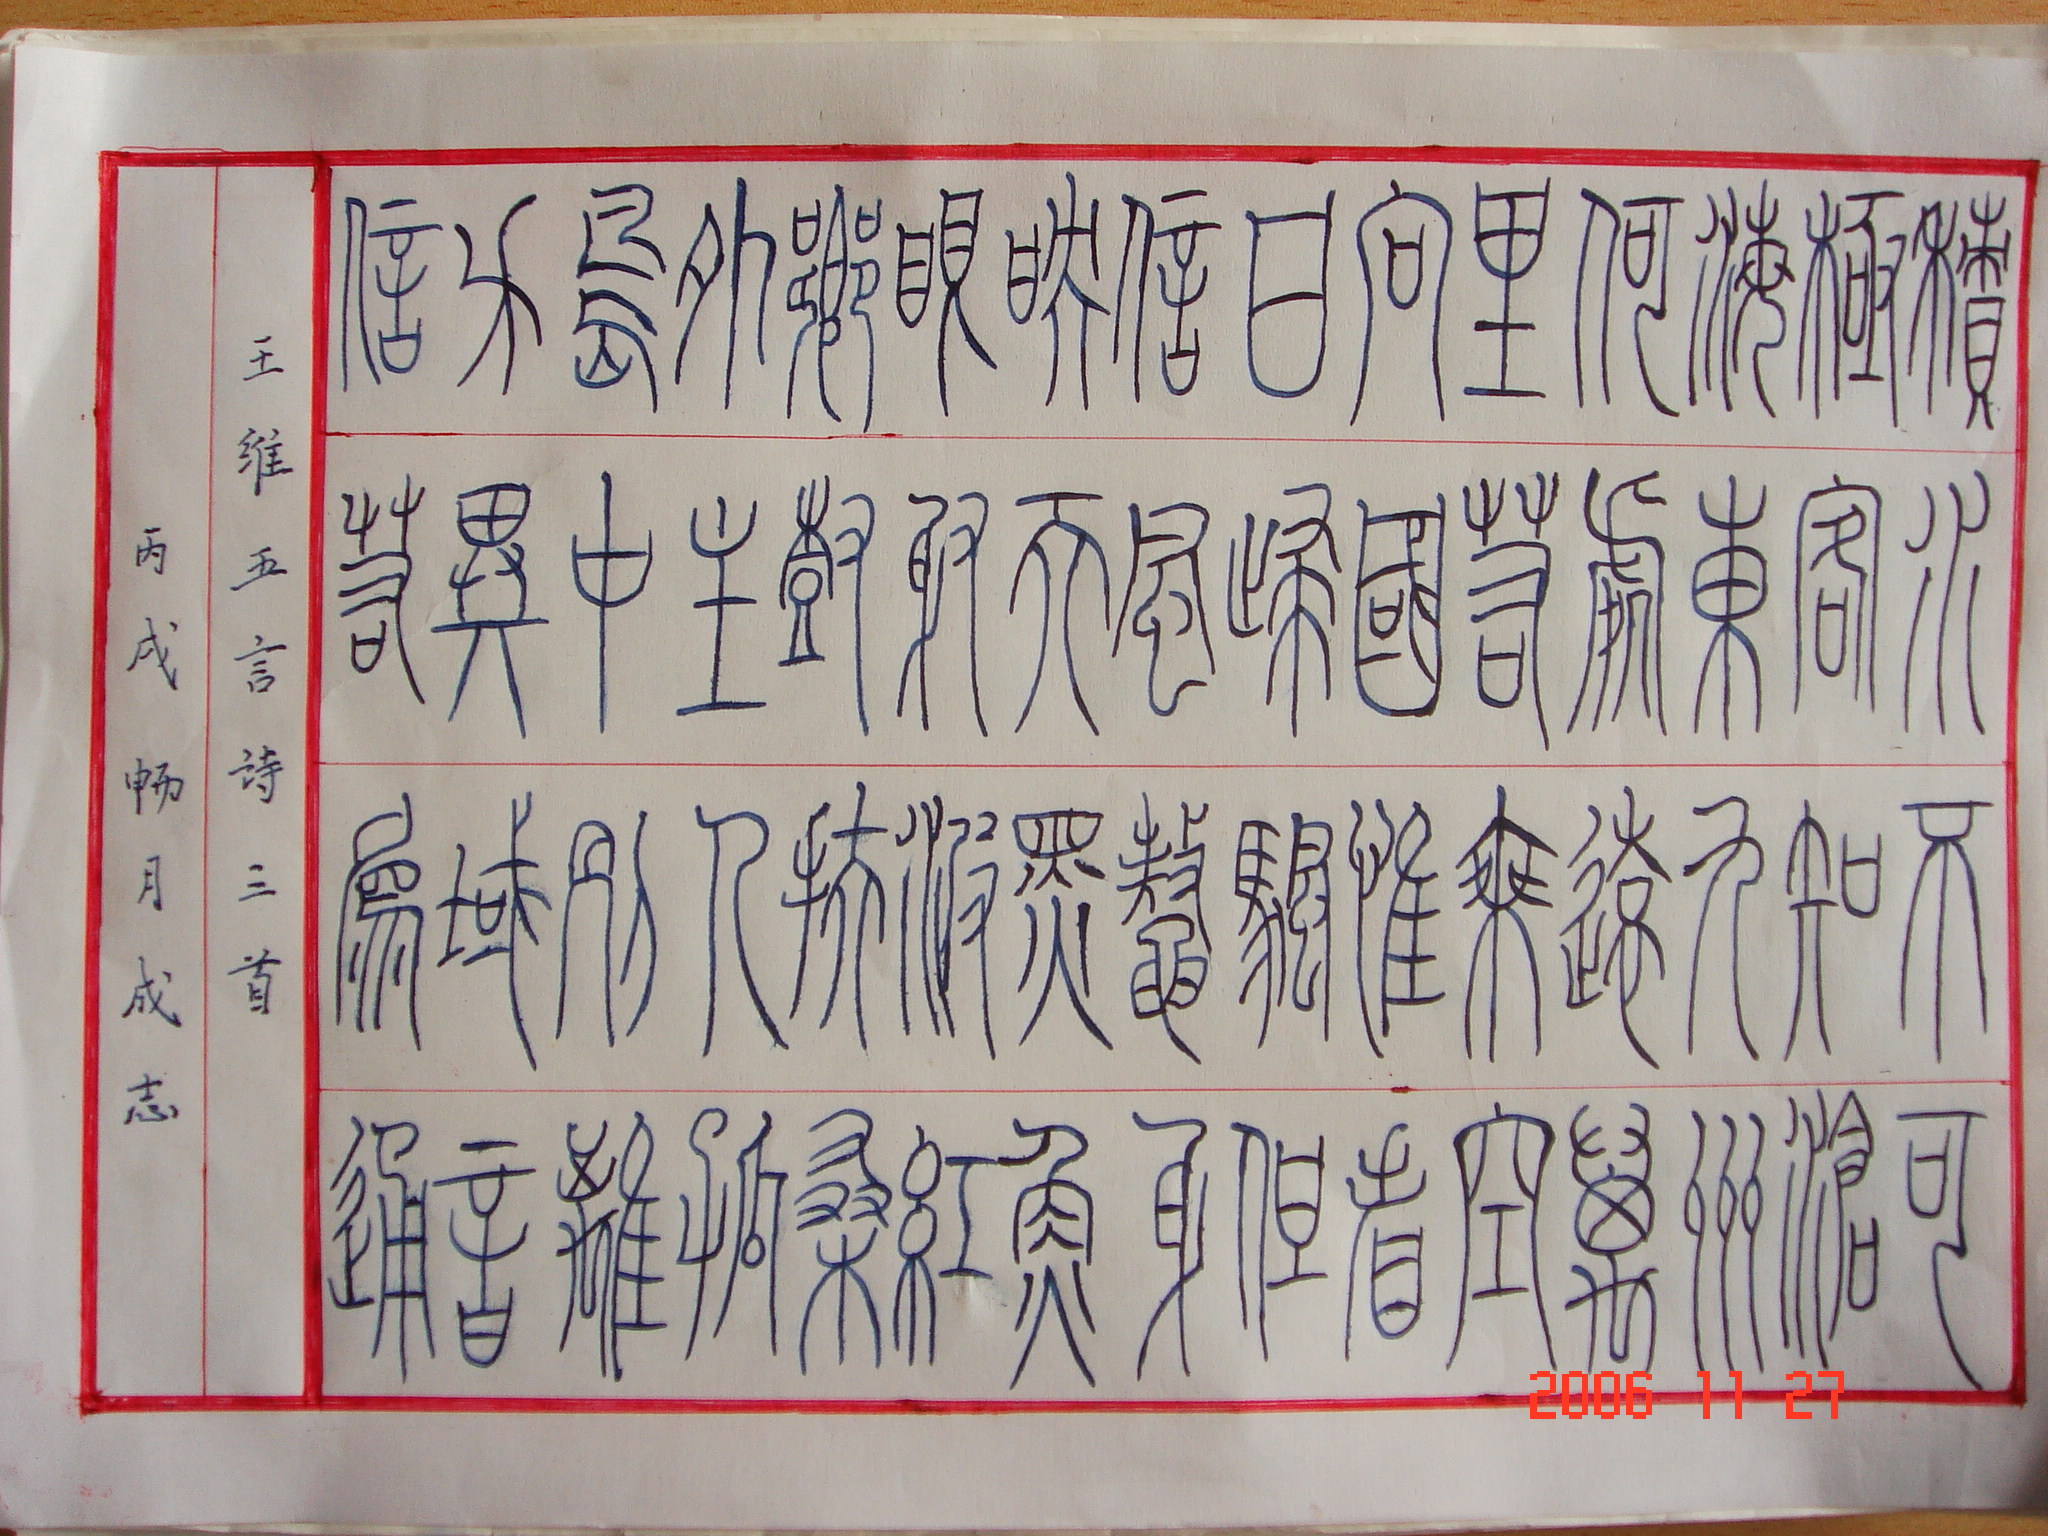 積水不可
極客知滄
海東九州
何處遠萬
里若乘空
向國惟看
日歸颿但
信風鼇身
映天黑魚
眼射波紅
鄉樹扶桑
外主人孤
島中別離
方異域音
信若為通
王維五言詩三首
丙戌畅月成志
2006 11 27